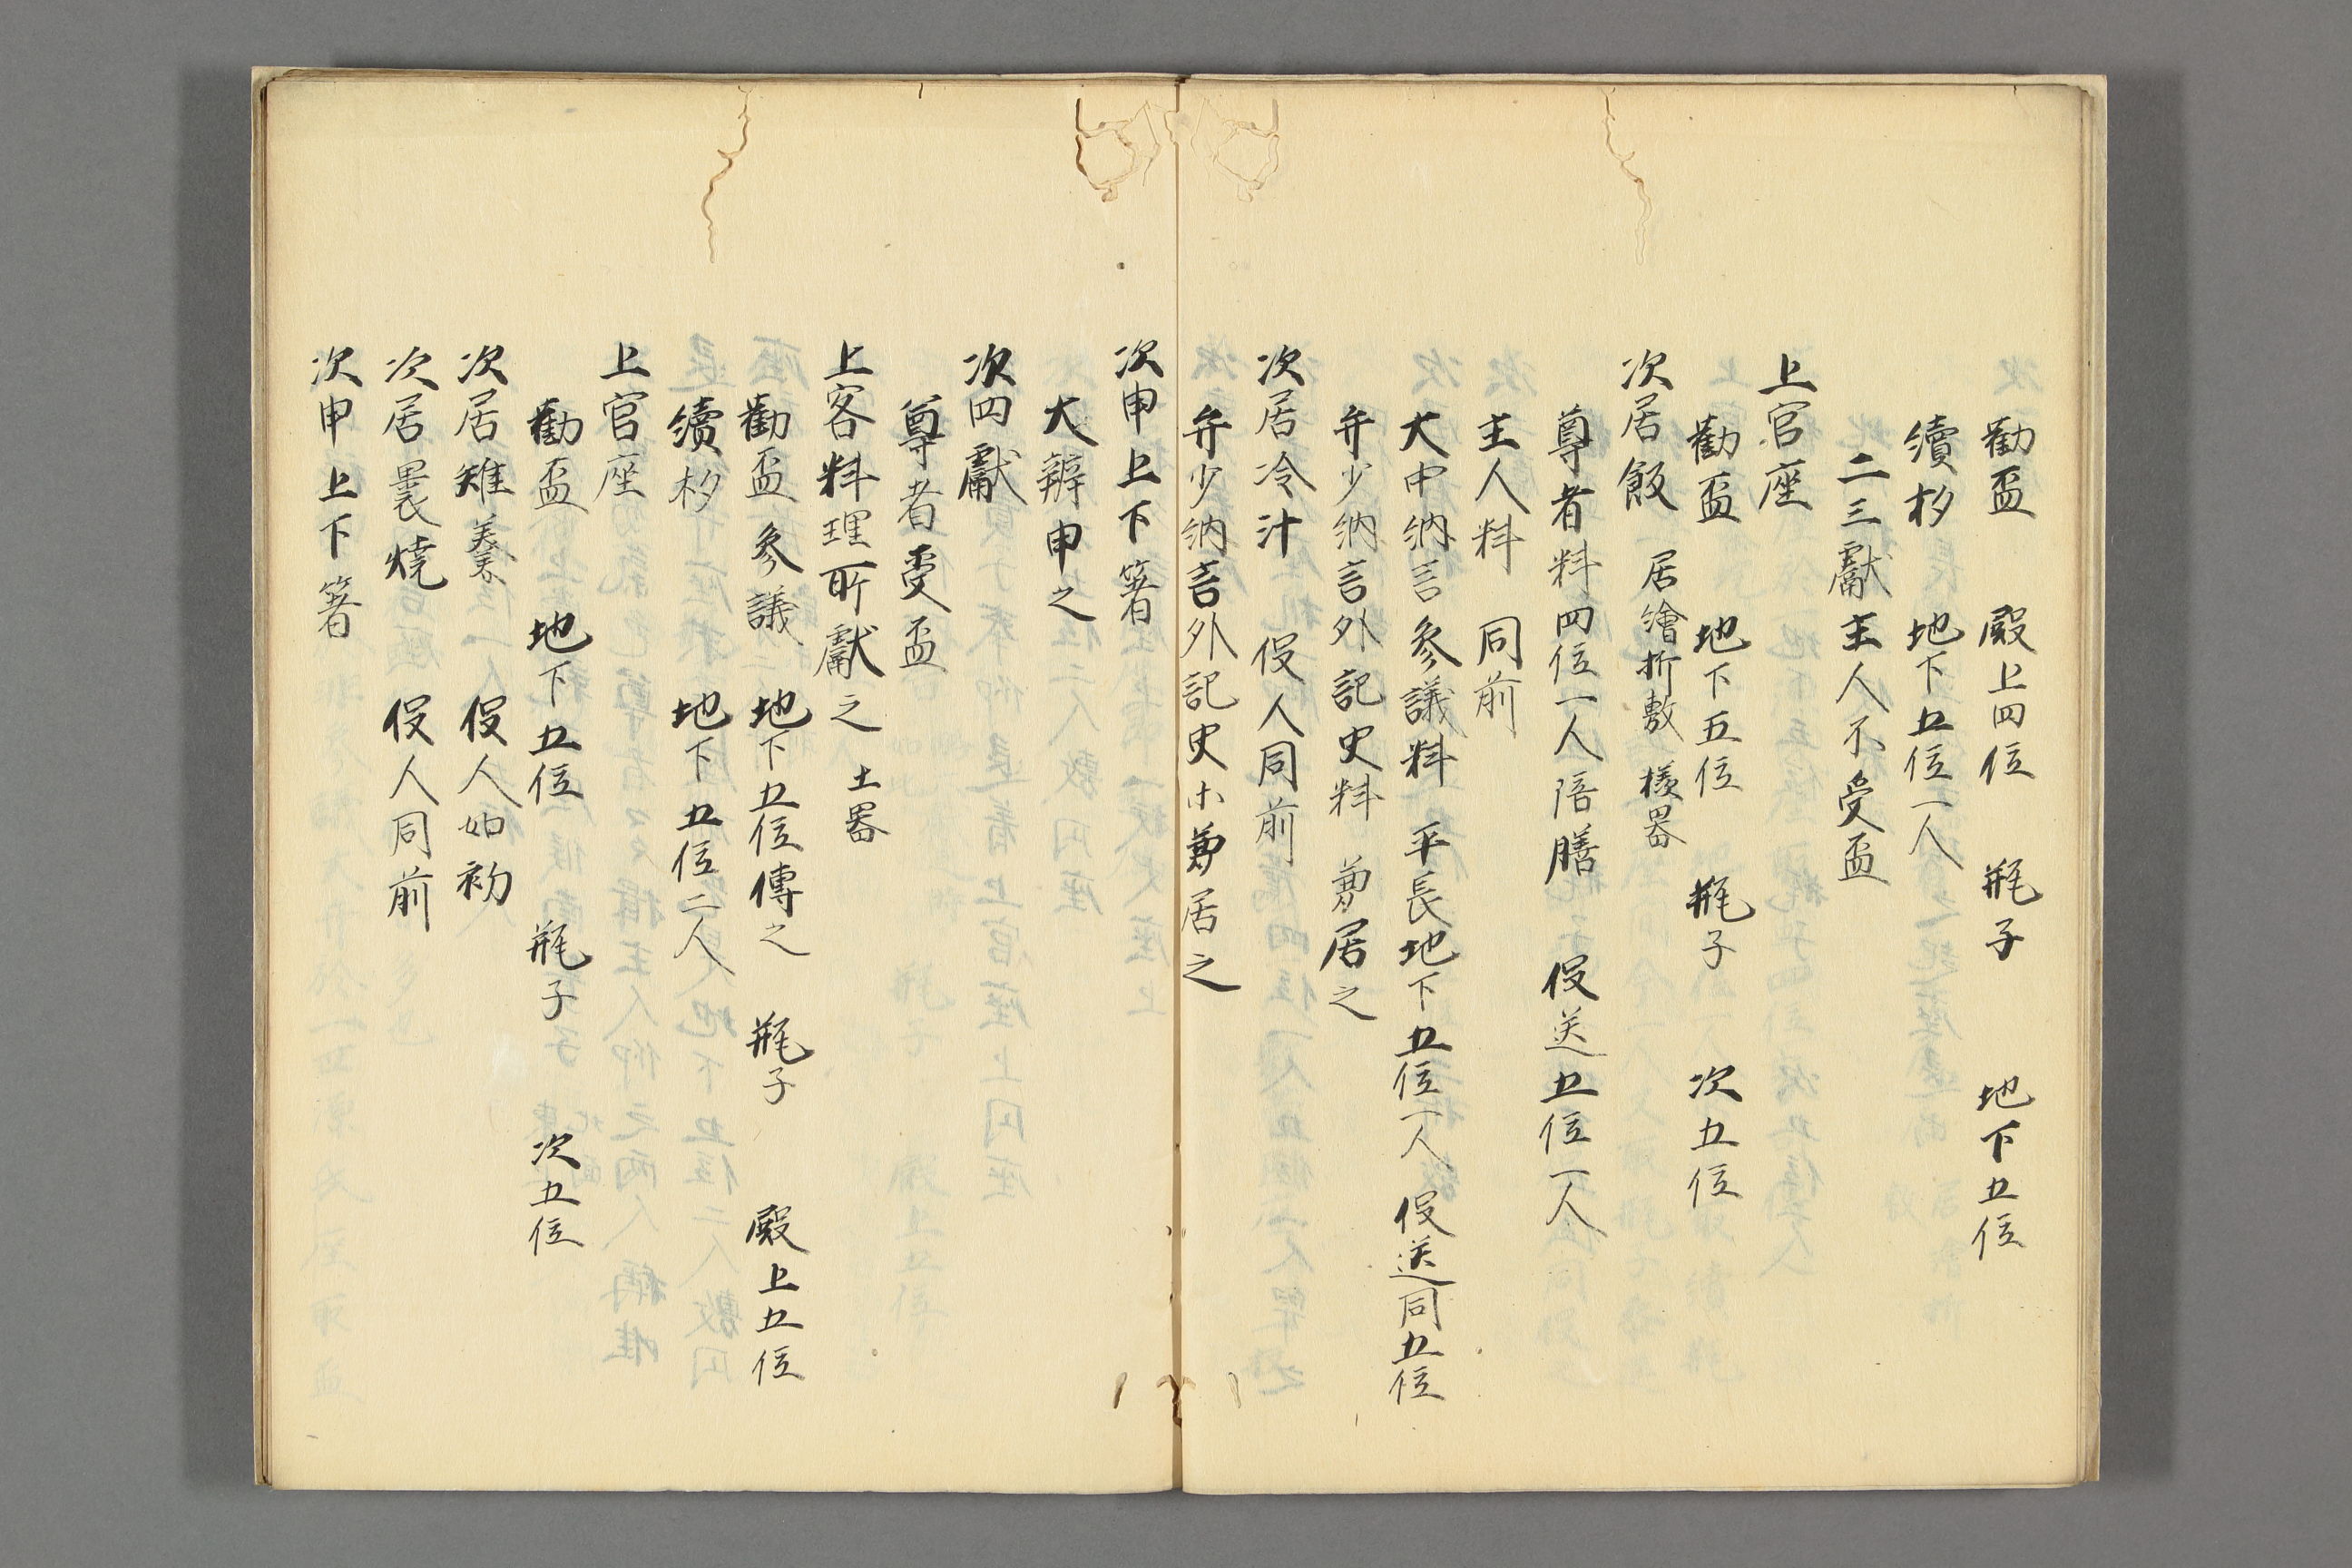 勸盃　殿上四位　瓶子　地下五位
續杉　地下五位一人
二三獻主人不受盃
上官座
勸盃　地下五位　瓶子　次五位
次居飯　居繪折敷　樣器
尊者料四位一人陪膳　役送五位一人
主人料　同前
大中納言參議料　平長地下五位一人　役送同五位
弁少納言外記史料　居之
次居冷汁　役人同前
弁少納言外記史 居之
次申上下箸
大辨申之
次四獻
尊者受盃
上客料理所獻之　土器
勸盃　參議　地下五位傳之　瓶子　殿上五位
續杉　地下五位二人
上官座
勸盃　地下五位　瓶子　次五位
次居雉羹　役人如初
次居裹燒　役人同前
次申上下箸